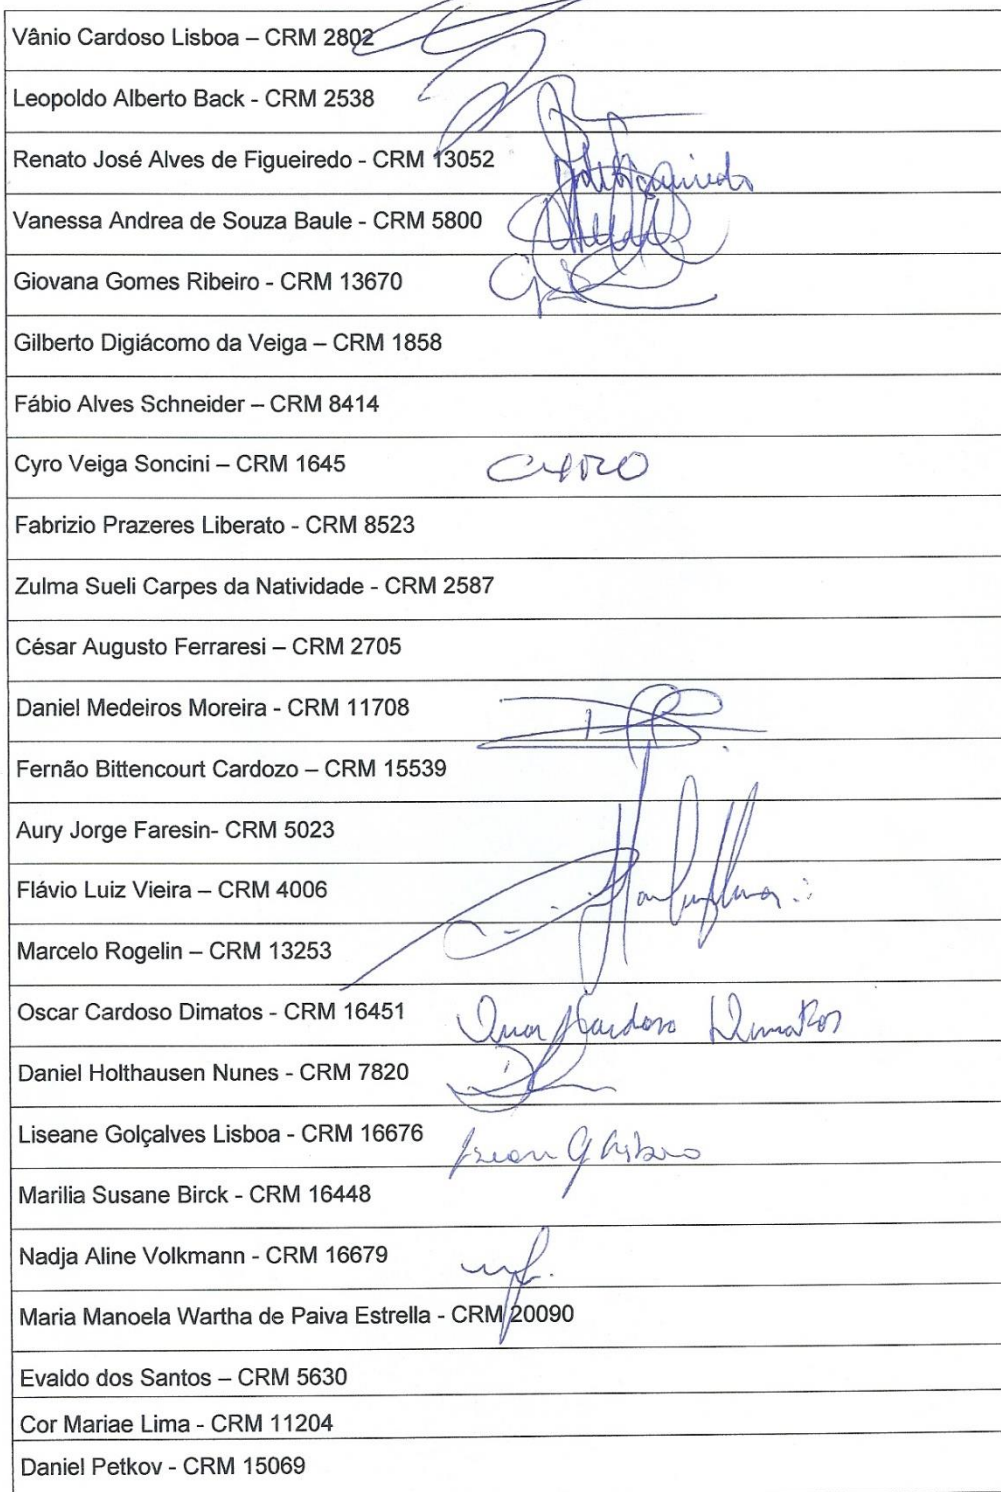 Vânio Cardoso Lisboa – CRM 2802
Leopoldo Alberto Back - CRM 2538
Renato José Alves de Figueiredo - CRM 13052
Vanessa Andrea de Souza Baule - CRM 5800
Giovana Gomes Ribeiro - CRM 13670
Gilberto Digiácomo da Veiga – CRM 1858
Fábio Alves Schneider – CRM 8414
Cyro Veiga Soncini – CRM 1645
Fabrizio Prazeres Liberato - CRM 8523
Zulma Sueli Carpes da Natividade - CRM 2587
César Augusto Ferraresi – CRM 2705
Daniel Medeiros Moreira - CRM 11708
Fernão Bittencourt Cardozo – CRM 15539
Aury Jorge Faresin- CRM 5023
Flávio Luiz Vieira – CRM 4006
Marcelo Rogelin – CRM 13253
Oscar Cardoso Dimatos - CRM 16451 Oscar Cardoso Dimatos
Daniel Holthausen Nunes - CRM 7820
Liseane Golçalves Lisboa - CRM 16676
Marilia Susane Birck - CRM 16448
Nadja Aline Volkmann - CRM 16679
Maria Manoela Wartha de Paiva Estrella - CRM 20090
Evaldo dos Santos – CRM 5630
Cor Mariae Lima - CRM 11204
Daniel Petkov - CRM 15069